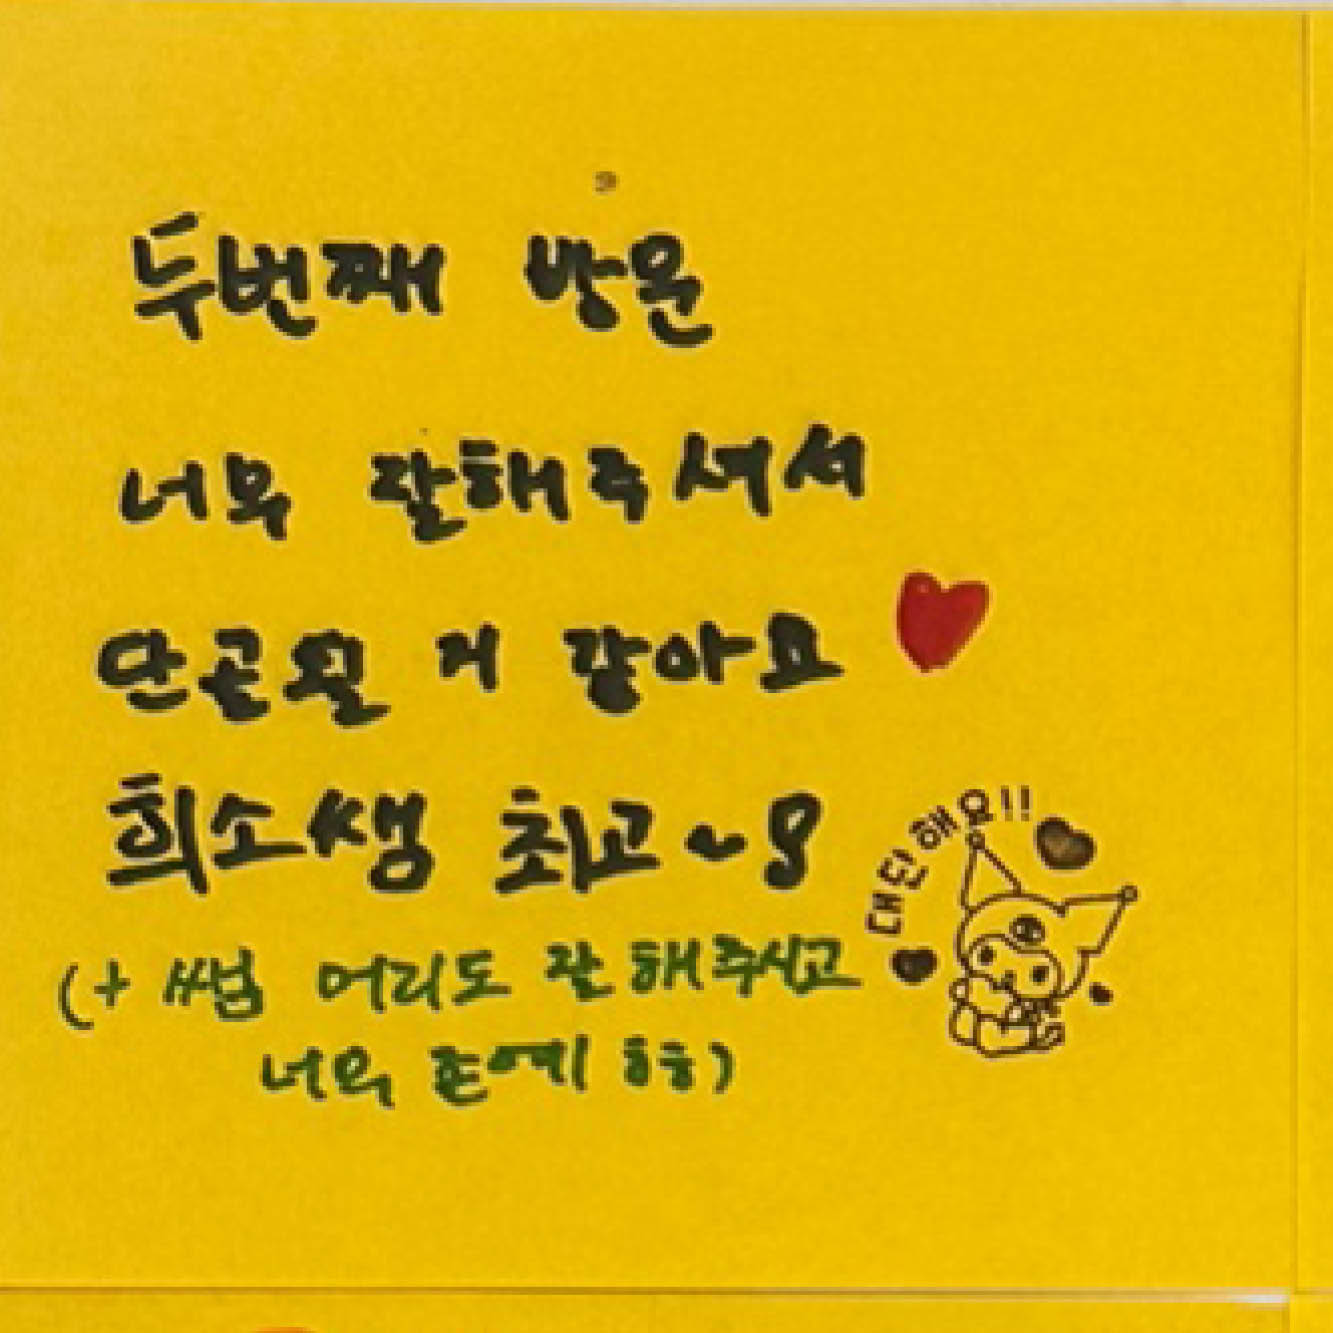 두번째 방문
너무 잘해주셔서
단골될 거 같아요
희소쌤 최고~!
대단해요!!
(+ 쌤 머리도 잘해주시고
너무 존예 ㅎㅎ)